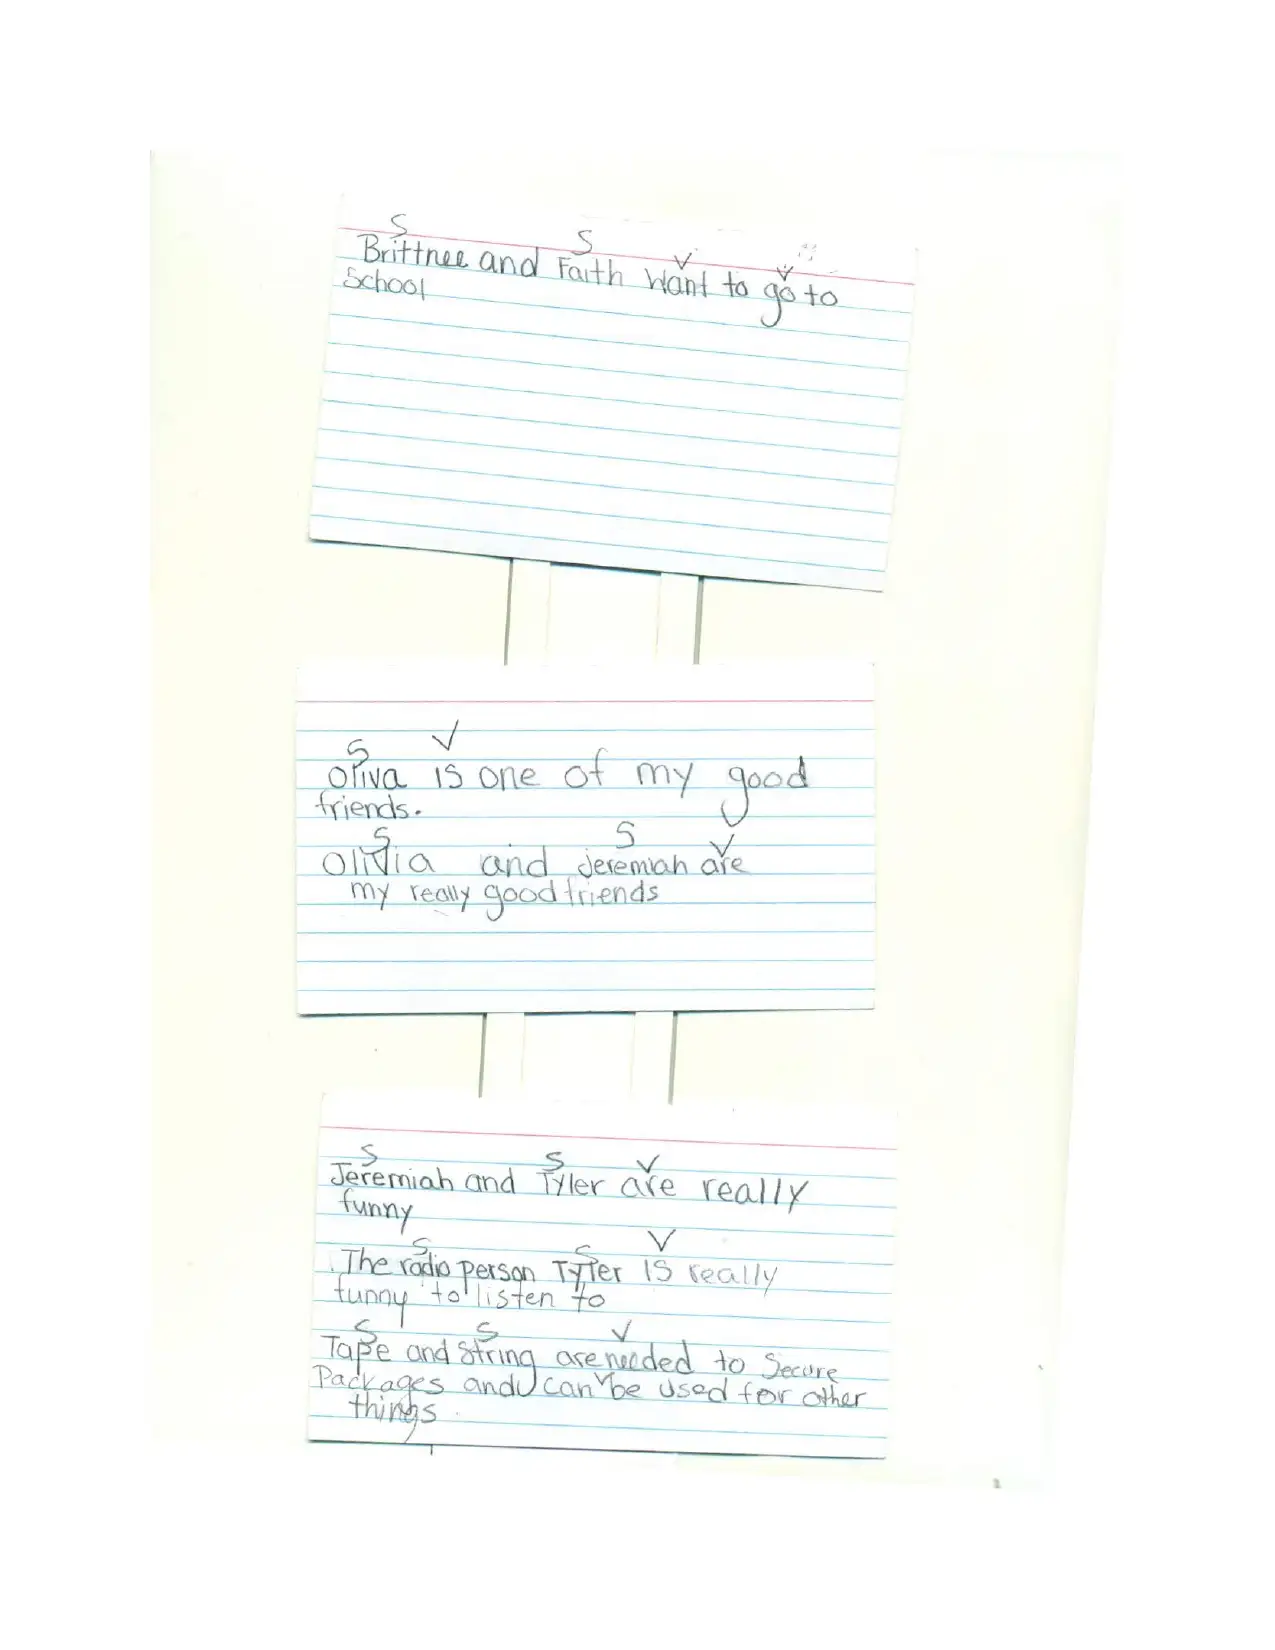 S S V V
Brittnee and Faith Want to go to
School
S V
Oliva is one of my good
friends.
S S V
Olivia and Jeremiah are
my really good friends
S S V
Jeremiah and Tyler are really
funny
S S V
The radio person Tyler is really
funny to listen to
S S V
Tape and String are needed to Secure
V
Packages and can be used for other
things